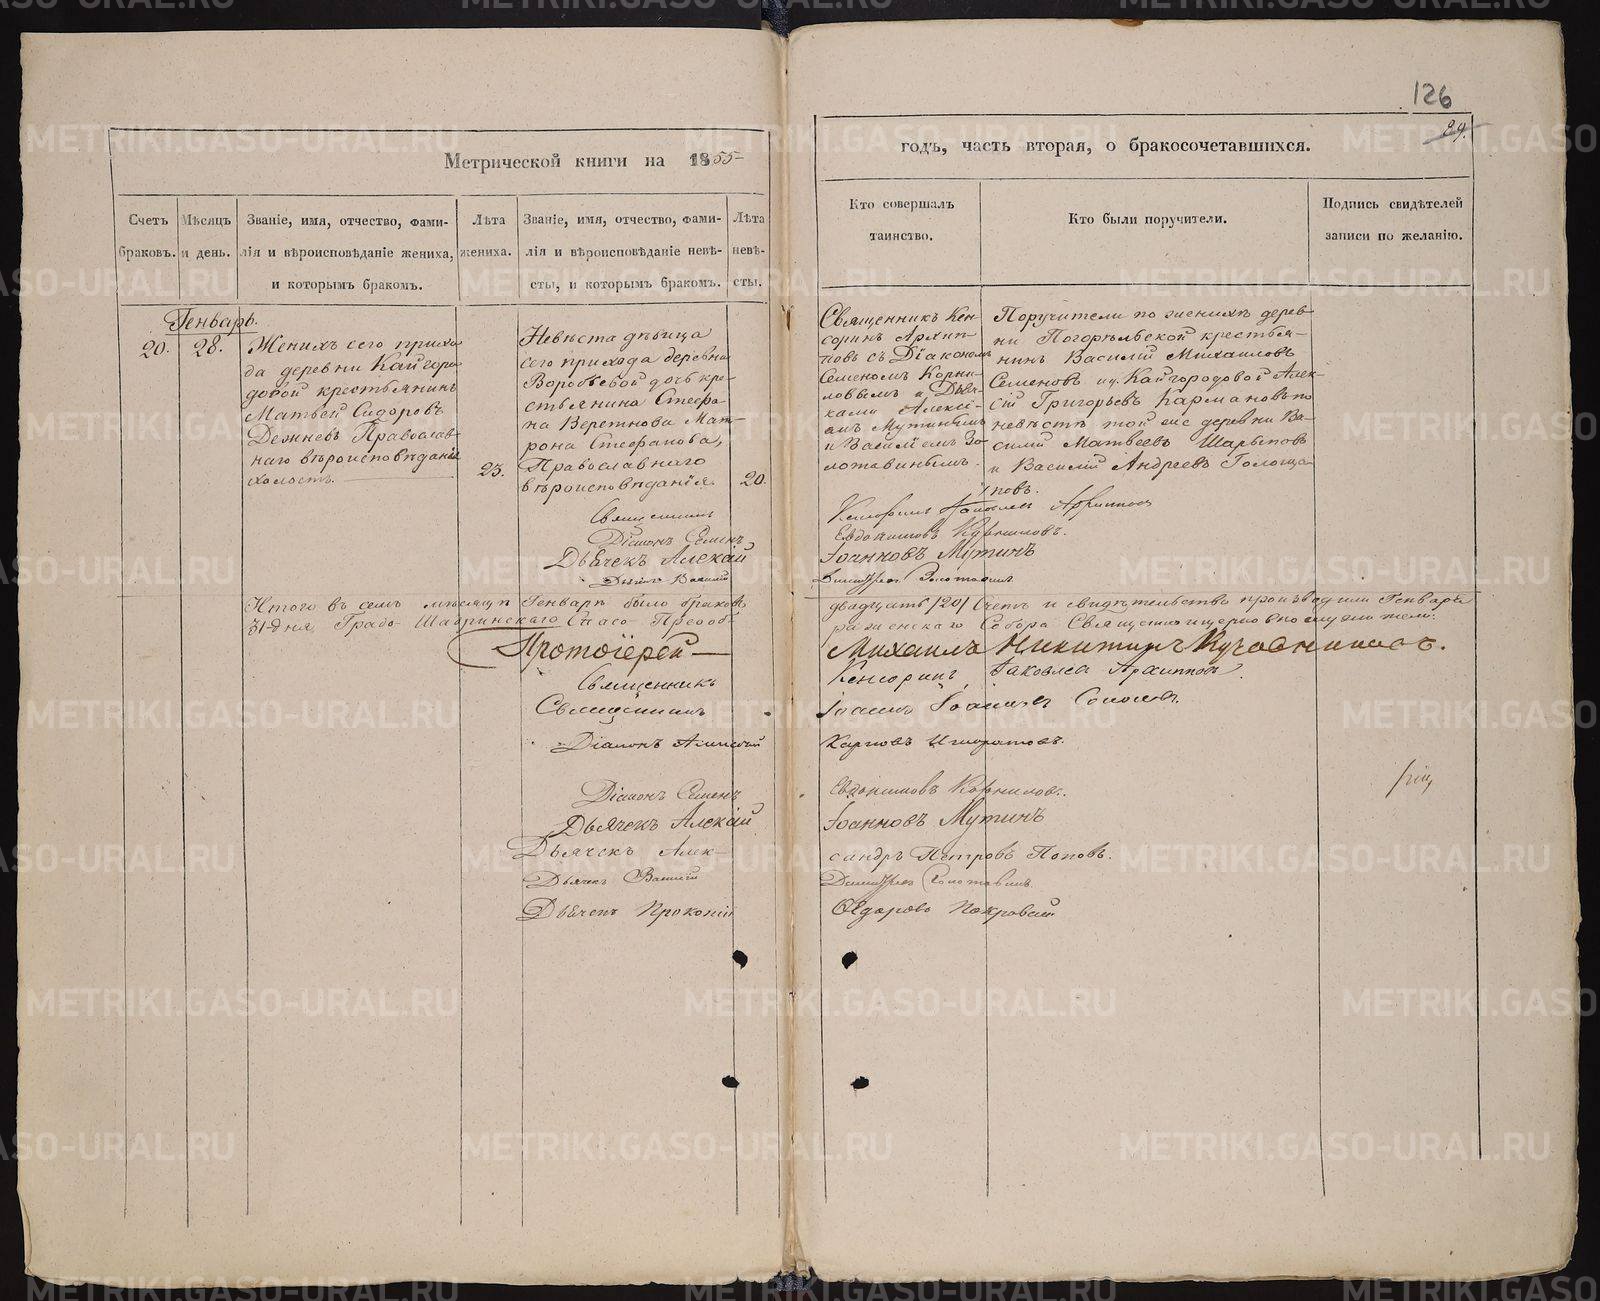 126
89.
Метрической книги на 1855
годъ, часть вторая, о бракосочетавшихся.
Счетъ браковъ.
Мѣсяцъ и день.
Званіе, имя, отчество, фами-
лія и вѣроисповѣданіе жениха,
и которымъ бракомъ.
Лѣта жениха.
Званіе, имя, отчество, фами-
лія и вѣроисповѣданіе невѣ-
сты, и которымъ бракомъ.
Лѣта невѣ-
сты.
Кто совершалъ
таинство.
Кто были поручители.
Подпись свидѣтелей
записи по желанію.
Генварь.
20.
28.
Женихъ сего прихо
да деревни Кайгоро
довой крестьянинъ
Матвей Сидоровъ
Дежневъ Православ
наго вѣроисповѣданія
холостъ.
23.
Невѣста дѣвица
сего прихода деревни
Воробьевой дочь кре
стьянина Стефа
на Веретнова Мат
рона Стефанова,
Православнаго
вѣроисповѣданія.
20.
Священникъ Кен
соринъ Архип
повъ съ Діакономъ
Семеномъ Корни
ловымъ и Дья
ками Алексі
емъ Мутинымъ
и Василіемъ Зо
лотавинымъ.
Поручители по женихѣ дерев
ни Погорѣльской крестья
нинъ Василій Михаиловъ
Семеновъ и д. Кайгородовой Алек
сій Григорьевъ Кармановъ по
невѣстѣ той же деревни Ва
силій Матвеевъ Шарыповъ
и Василій Андреевъ Голоща
повъ.
Священникъ Кенсоринъ Іаковлев Архиппов
Діаконъ Семенъ Евдокимовъ Корниловъ.
Дьячекъ Алексій Іоанновъ Мутинъ
Дьячекъ Василий Димитриев Золотавин
Итого въ семъ мѣсяцѣ Генварѣ было браковъ двадцать /20/ Счетъ и свидѣтельство производили Генваря
31 дня Градо-Шадринскаго Спасо-Преоб раженскаго Собора Священноцерковнослужители:
Протоіерей Михаилъ Никитинъ
Священникъ Кенсоринъ Іаковлев Архиппов.
Священникъ Іоаннъ Іоанновъ
Діаконъ Алексий Карповъ Игнатовъ.
Діаконъ Семенъ Евдокимовъ Корниловъ.
Дьячекъ Алексій Іоанновъ Мутинъ
Дьячекъ Алек сандръ Петровъ Поповъ.
Дьячекъ Василий Димитриев Золотавин.
Дьячекъ Прокопій Ѳедоровъ Покровский
METRIKI.GASO-URAL.RU